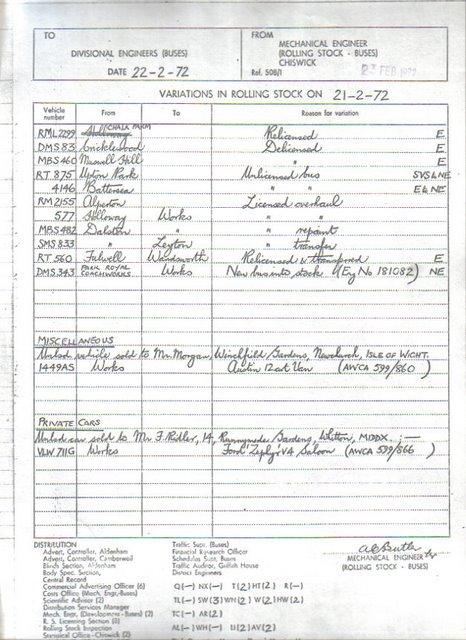 TO
DIVISIONAL ENGINEERS (BUSES)
DATE 22-2-72
FROM
MECHANICAL ENGINEER
(ROLLING STOCK - BUSES)
CHISWICK
Ref. 508/1
23 FEB 1972
VARIATIONS IN ROLLING STOCK ON 21-2-72
Vehicle number From To Reason for variation
RML 2299 Holloway CHALK FARM Relicensed E
DMS 83 Cricklewood Delicensed E
MBS 460 Muswell Hill " E
RT 875 Upton Park Unlicensed bus SVS & NE
4146 Battersea " " E & NE
RM 2155 Alperton Licensed overhaul
577 Holloway Works " "
MBS 482 Dalston " " repaint
SMS 833 " Leyton " transfer
RT 560 Fulwell Wandsworth Relicensed & transferred E
DMS 343 PARK ROYAL COACHWORKS Works New bus into stock (Eng No 181082) NE
MISCELLANEOUS
vehicle sold to Mr. Morgan, Winchfield Gardens, Newchurch, ISLE OF WIGHT.
1449AS Works Austin 12 cwt Van (AWCA 599/860)
PRIVATE CARS
car sold to Mr F. Ridler, 14, Runnymede Gardens, Whitton, MDDX. :—
VLW 711G Works Ford 'Zephyr' V4 Saloon (AWCA 599/866)
DISTRIBUTION
Advert. Controller, Aldenham
Advert. Controller, Camberwell
Blinds Section, Aldenham
Body Spec. Section,
Central Record
Commercial Advertising Officer (6)
Costs Office (Mech. Engr.-Buses)
Scientific Adviser (2)
Distribution Services Manager
Mech. Engr. (Development - Buses) (2)
R. S. Licensing Section (8)
Rolling Stock Inspection
Statistical Office - Chiswick (2)
Traffic Supt. (Buses)
Financial Research Officer
Schedules Supt. Buses
Traffic Auditor, Griffith House
District Engineers
Q(—) NX(—) T(2) HT(2) R(—)
TL(—) SW(3) WN(2) W(2) HW(2)
TC(—) AR(2)
AL(—) WH(—) U(2) AV(2)
MECHANICAL ENGINEER
(ROLLING STOCK - BUSES)